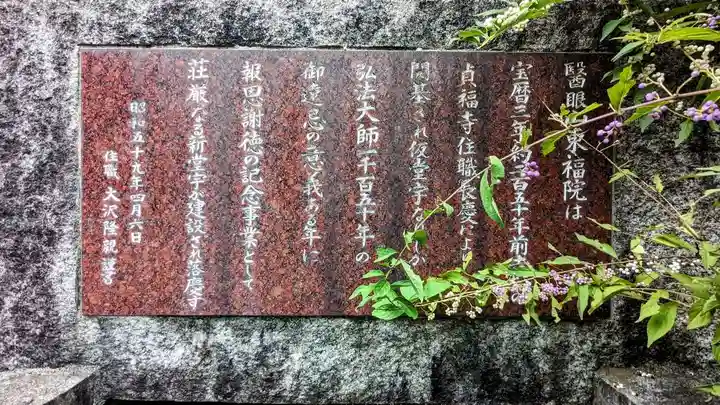 醫眼山東福院は
宝暦三年約二百五十年前
貞福寺住職長慶によ
開基され後堂宇な か
弘法大師一千百五十年の
御遠忌の意義ある年に
報恩謝徳の記念事業として
荘厳なる新堂宇が建設され落慶す
昭和五十九年四月六日
住職 大沢隆親